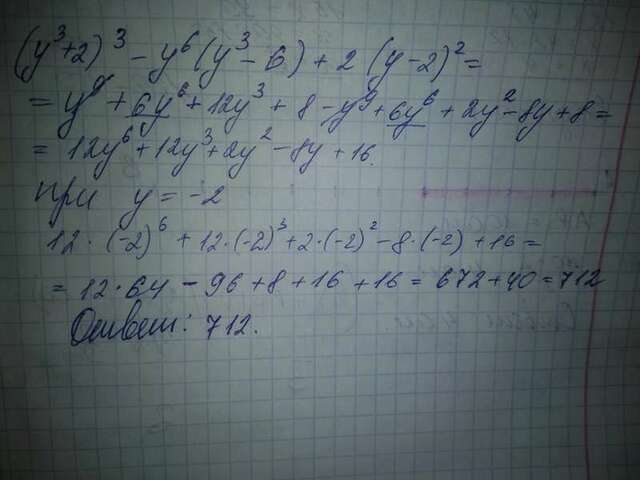 (y³+2)³ - y⁶(y³-6) + 2(y-2)² =
= y⁹ + 6y⁶ + 12y³ + 8 - y⁹ + 6y⁶ + 2y² - 8y + 8 =
= 12y⁶ + 12y³ + 2y² - 8y + 16.
при y = -2
12·(-2)⁶ + 12·(-2)³ + 2·(-2)² - 8·(-2) + 16 =
= 12·64 - 96 + 8 + 16 + 16 = 672 + 40 = 712
Ответ: 712.